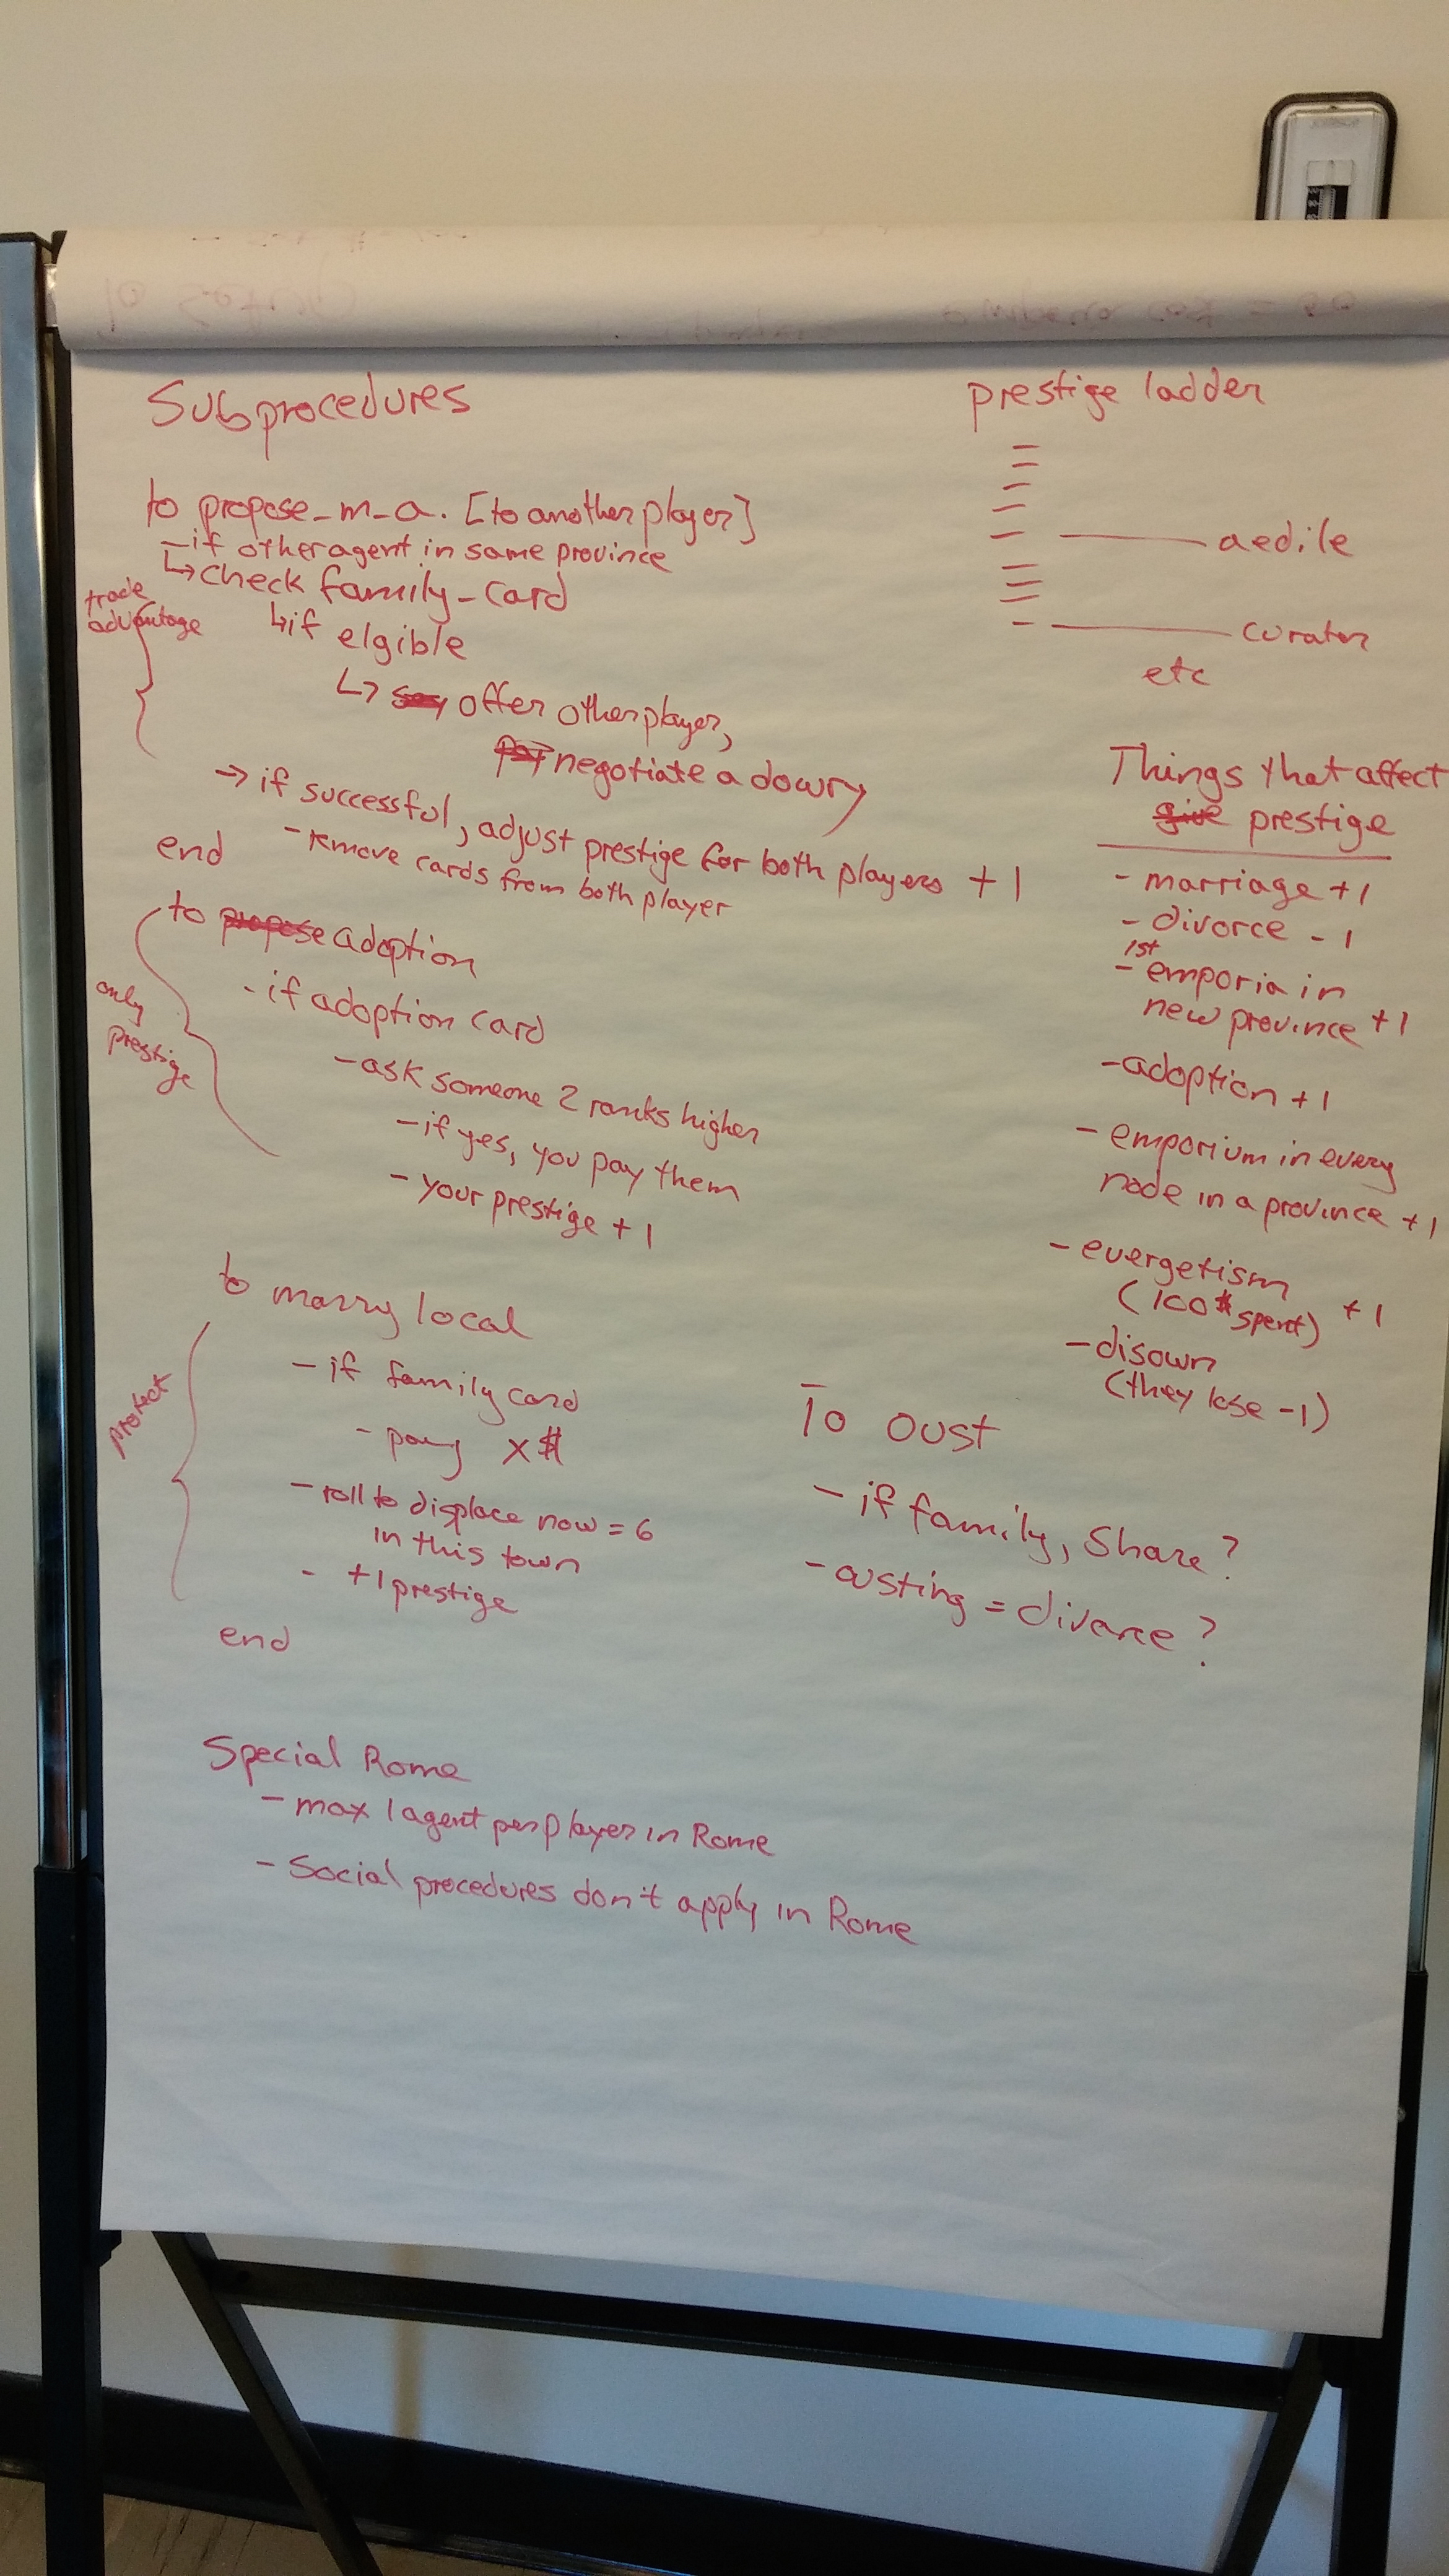 Subprocedures
to propose_m_a. [to another player]
- if other agent in same province
↳ check family_card
trade
advantage
↳ if elgible
↳ offer other player,
negotiate a dowry
→ if successful, adjust prestige for both players +1
- remove cards from both player
end
to adoption
only
prestige
- if adoption card
- ask someone 2 ranks higher
- if yes, you pay them
- your prestige +1
to marry local
protect
- if family card
- pay x$
- roll to displace now = 6
in this town
- +1 prestige
end
Special Rome
- max 1 agent per player in Rome
- Social procedures don't apply in Rome
prestige ladder
aedile
curator
etc
Things that affect
prestige
- marriage +1
- divorce -1
1st
- emporia in
new province +1
- adoption +1
- emporium in every
node in a province +1
- euergetism
(100$ spent) +1
- disown
(they lose -1)
To oust
- if family, share?
- ousting = divorce?